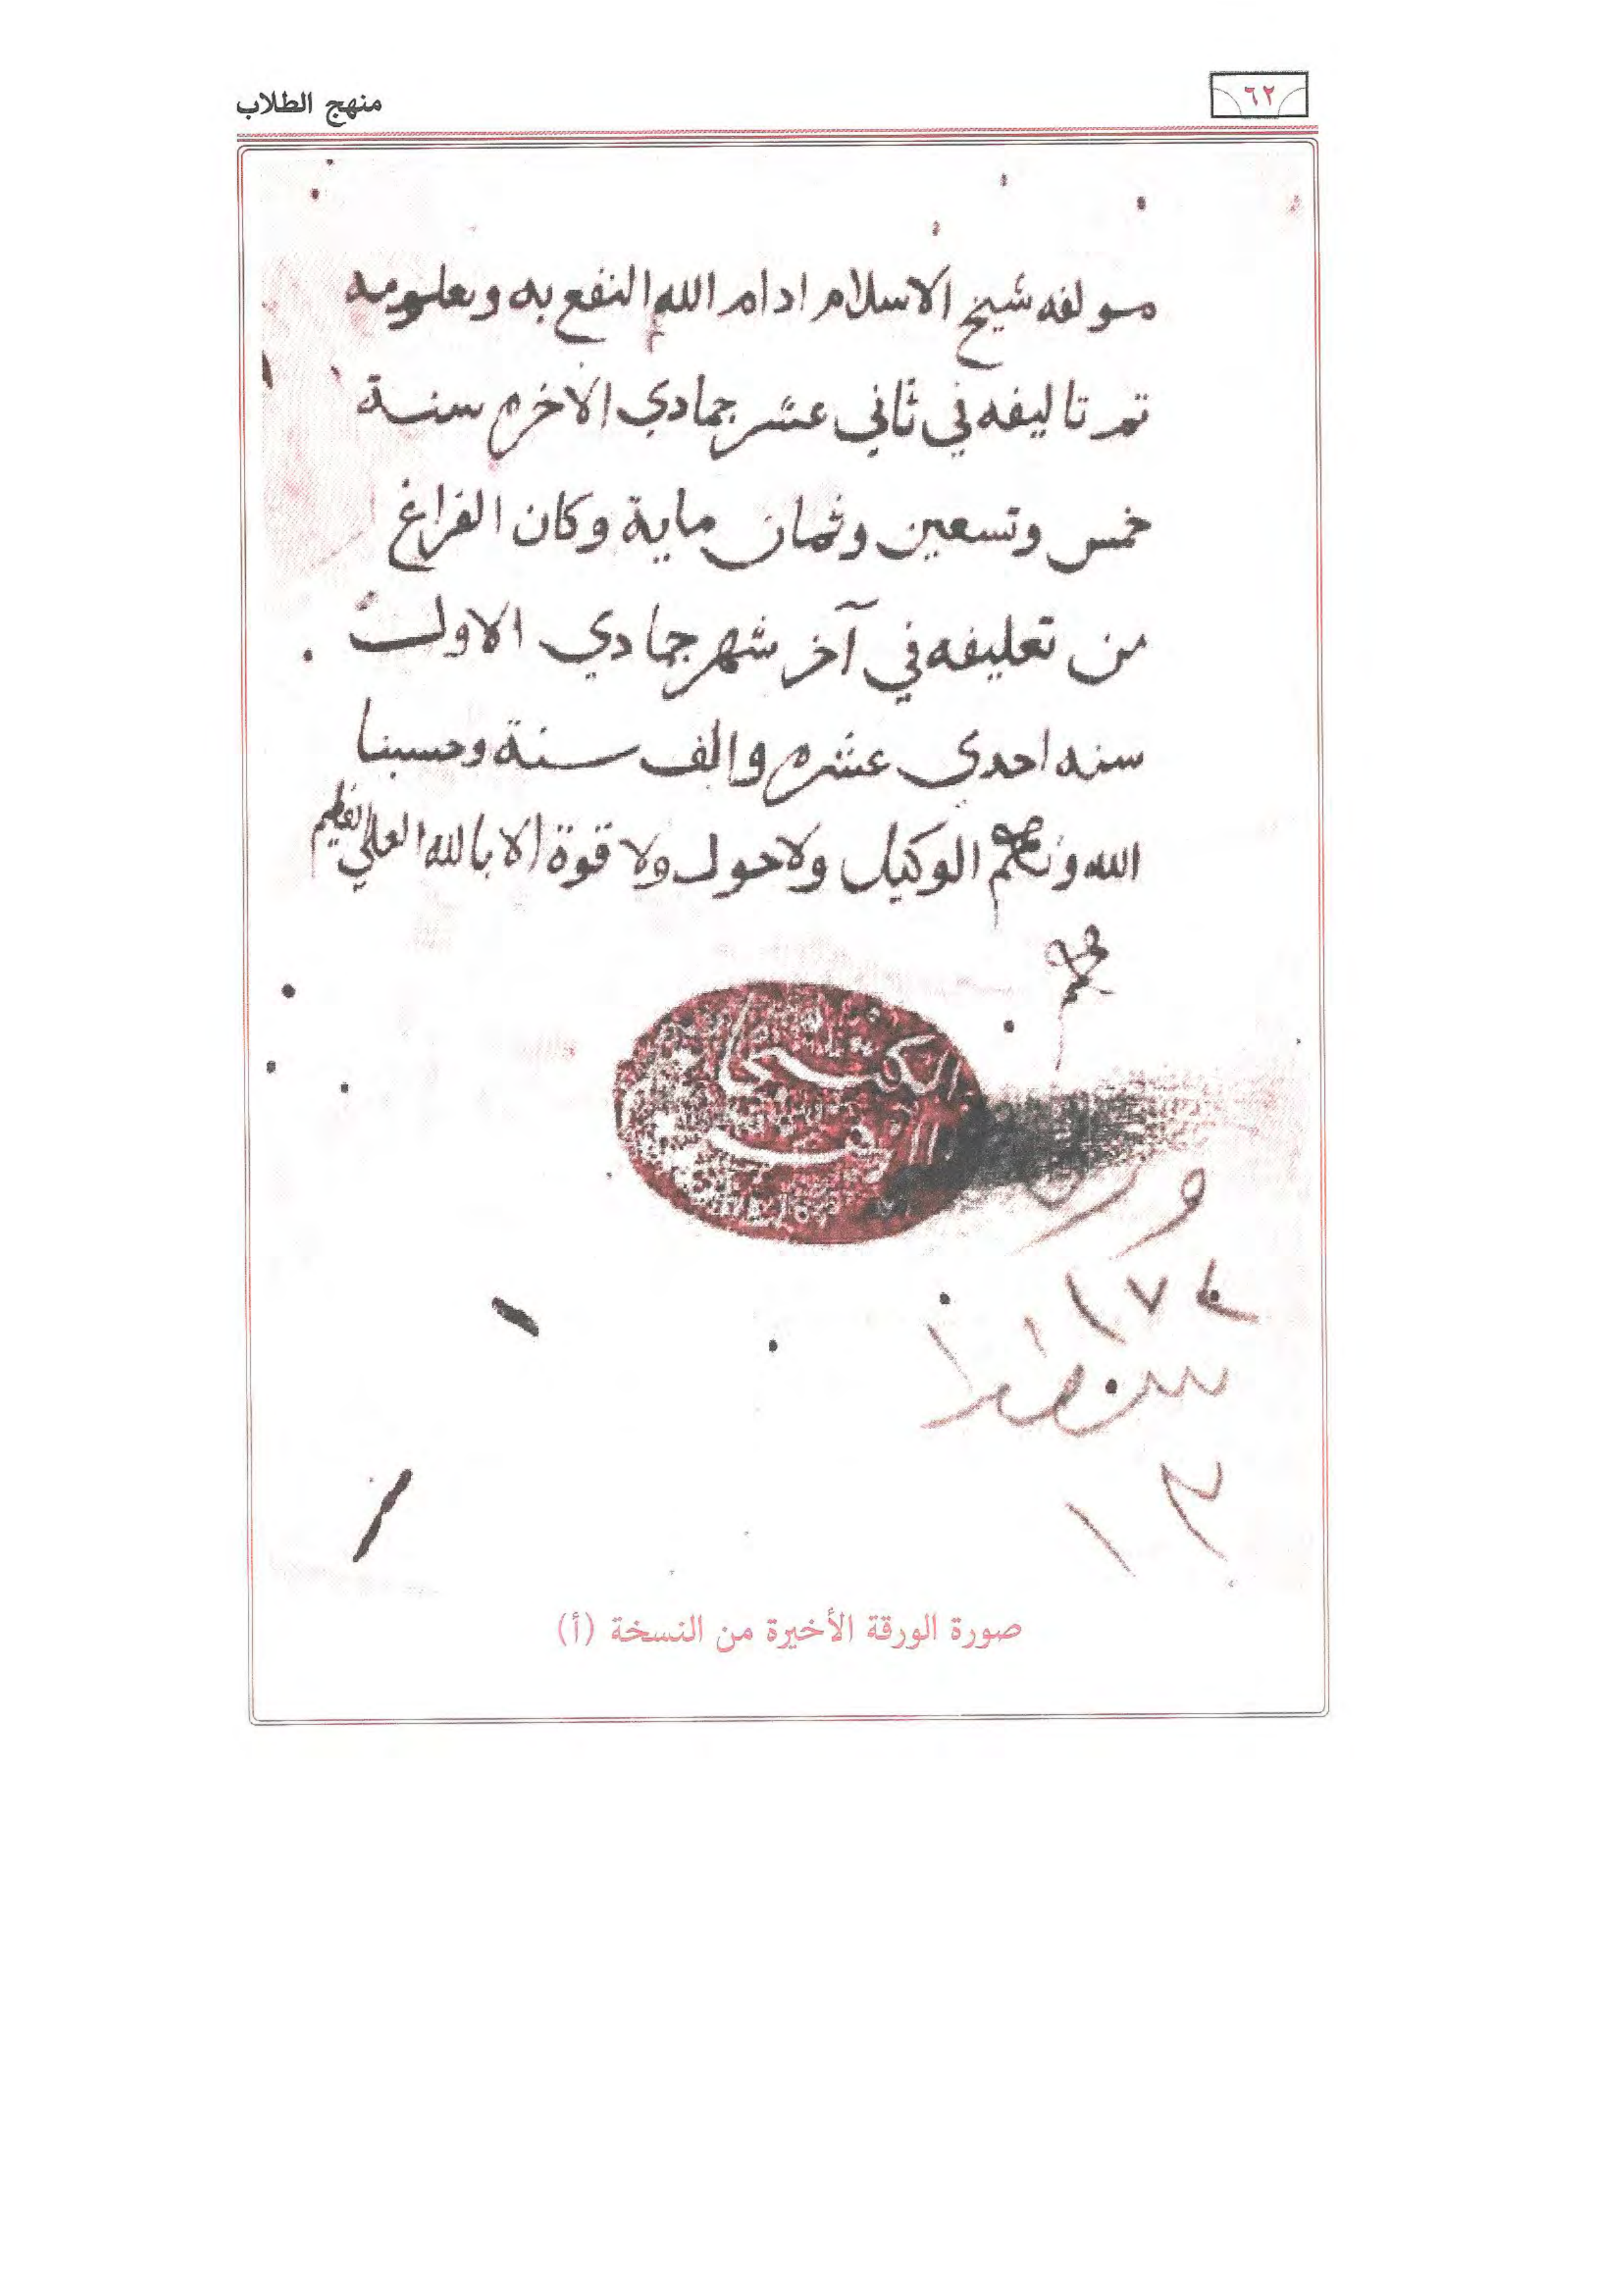 ٦٢
منهج الطلاب
مولفه شيخ الاسلام ادام الله النفع به وبعلومه
تم تاليفه في ثاني عشر جمادي الاخره سنة
خمس وتسعين وثمان ماية وكان الفراغ
من تعليفه في آخر شهر جمادي الاول
سنه احدي عشره والف سنة وحسبنا
الله ونعم الوكيل ولا حول ولا قوة الا بالله العلي العظيم
ورق
١٧٤
١٣
صورة الورقة الأخيرة من النسخة (أ)